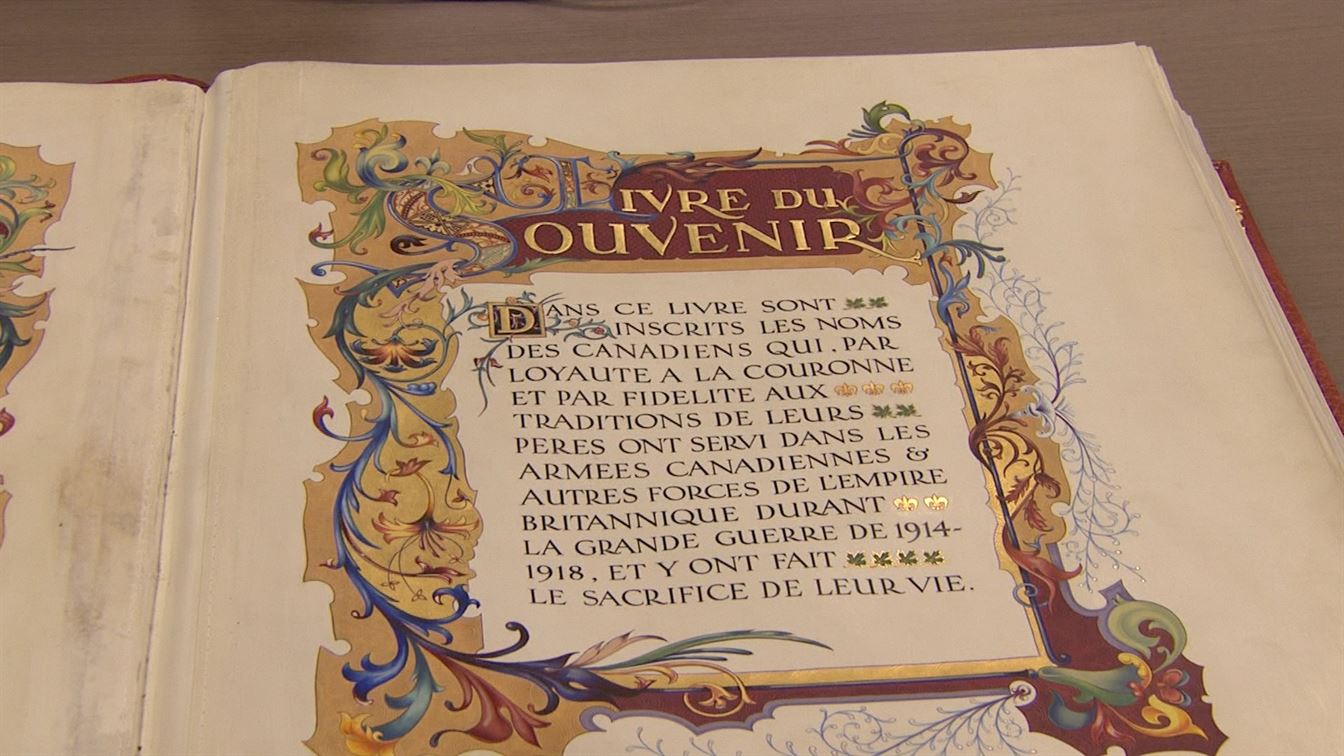 LIVRE DU
SOUVENIR
DANS CE LIVRE SONT
INSCRITS LES NOMS
DES CANADIENS QUI, PAR
LOYAUTE A LA COURONNE
ET PAR FIDELITE AUX
TRADITIONS DE LEURS
PERES ONT SERVI DANS LES
ARMEES CANADIENNES &
AUTRES FORCES DE L'EMPIRE
BRITANNIQUE DURANT
LA GRANDE GUERRE DE 1914-
1918, ET Y ONT FAIT
LE SACRIFICE DE LEUR VIE.